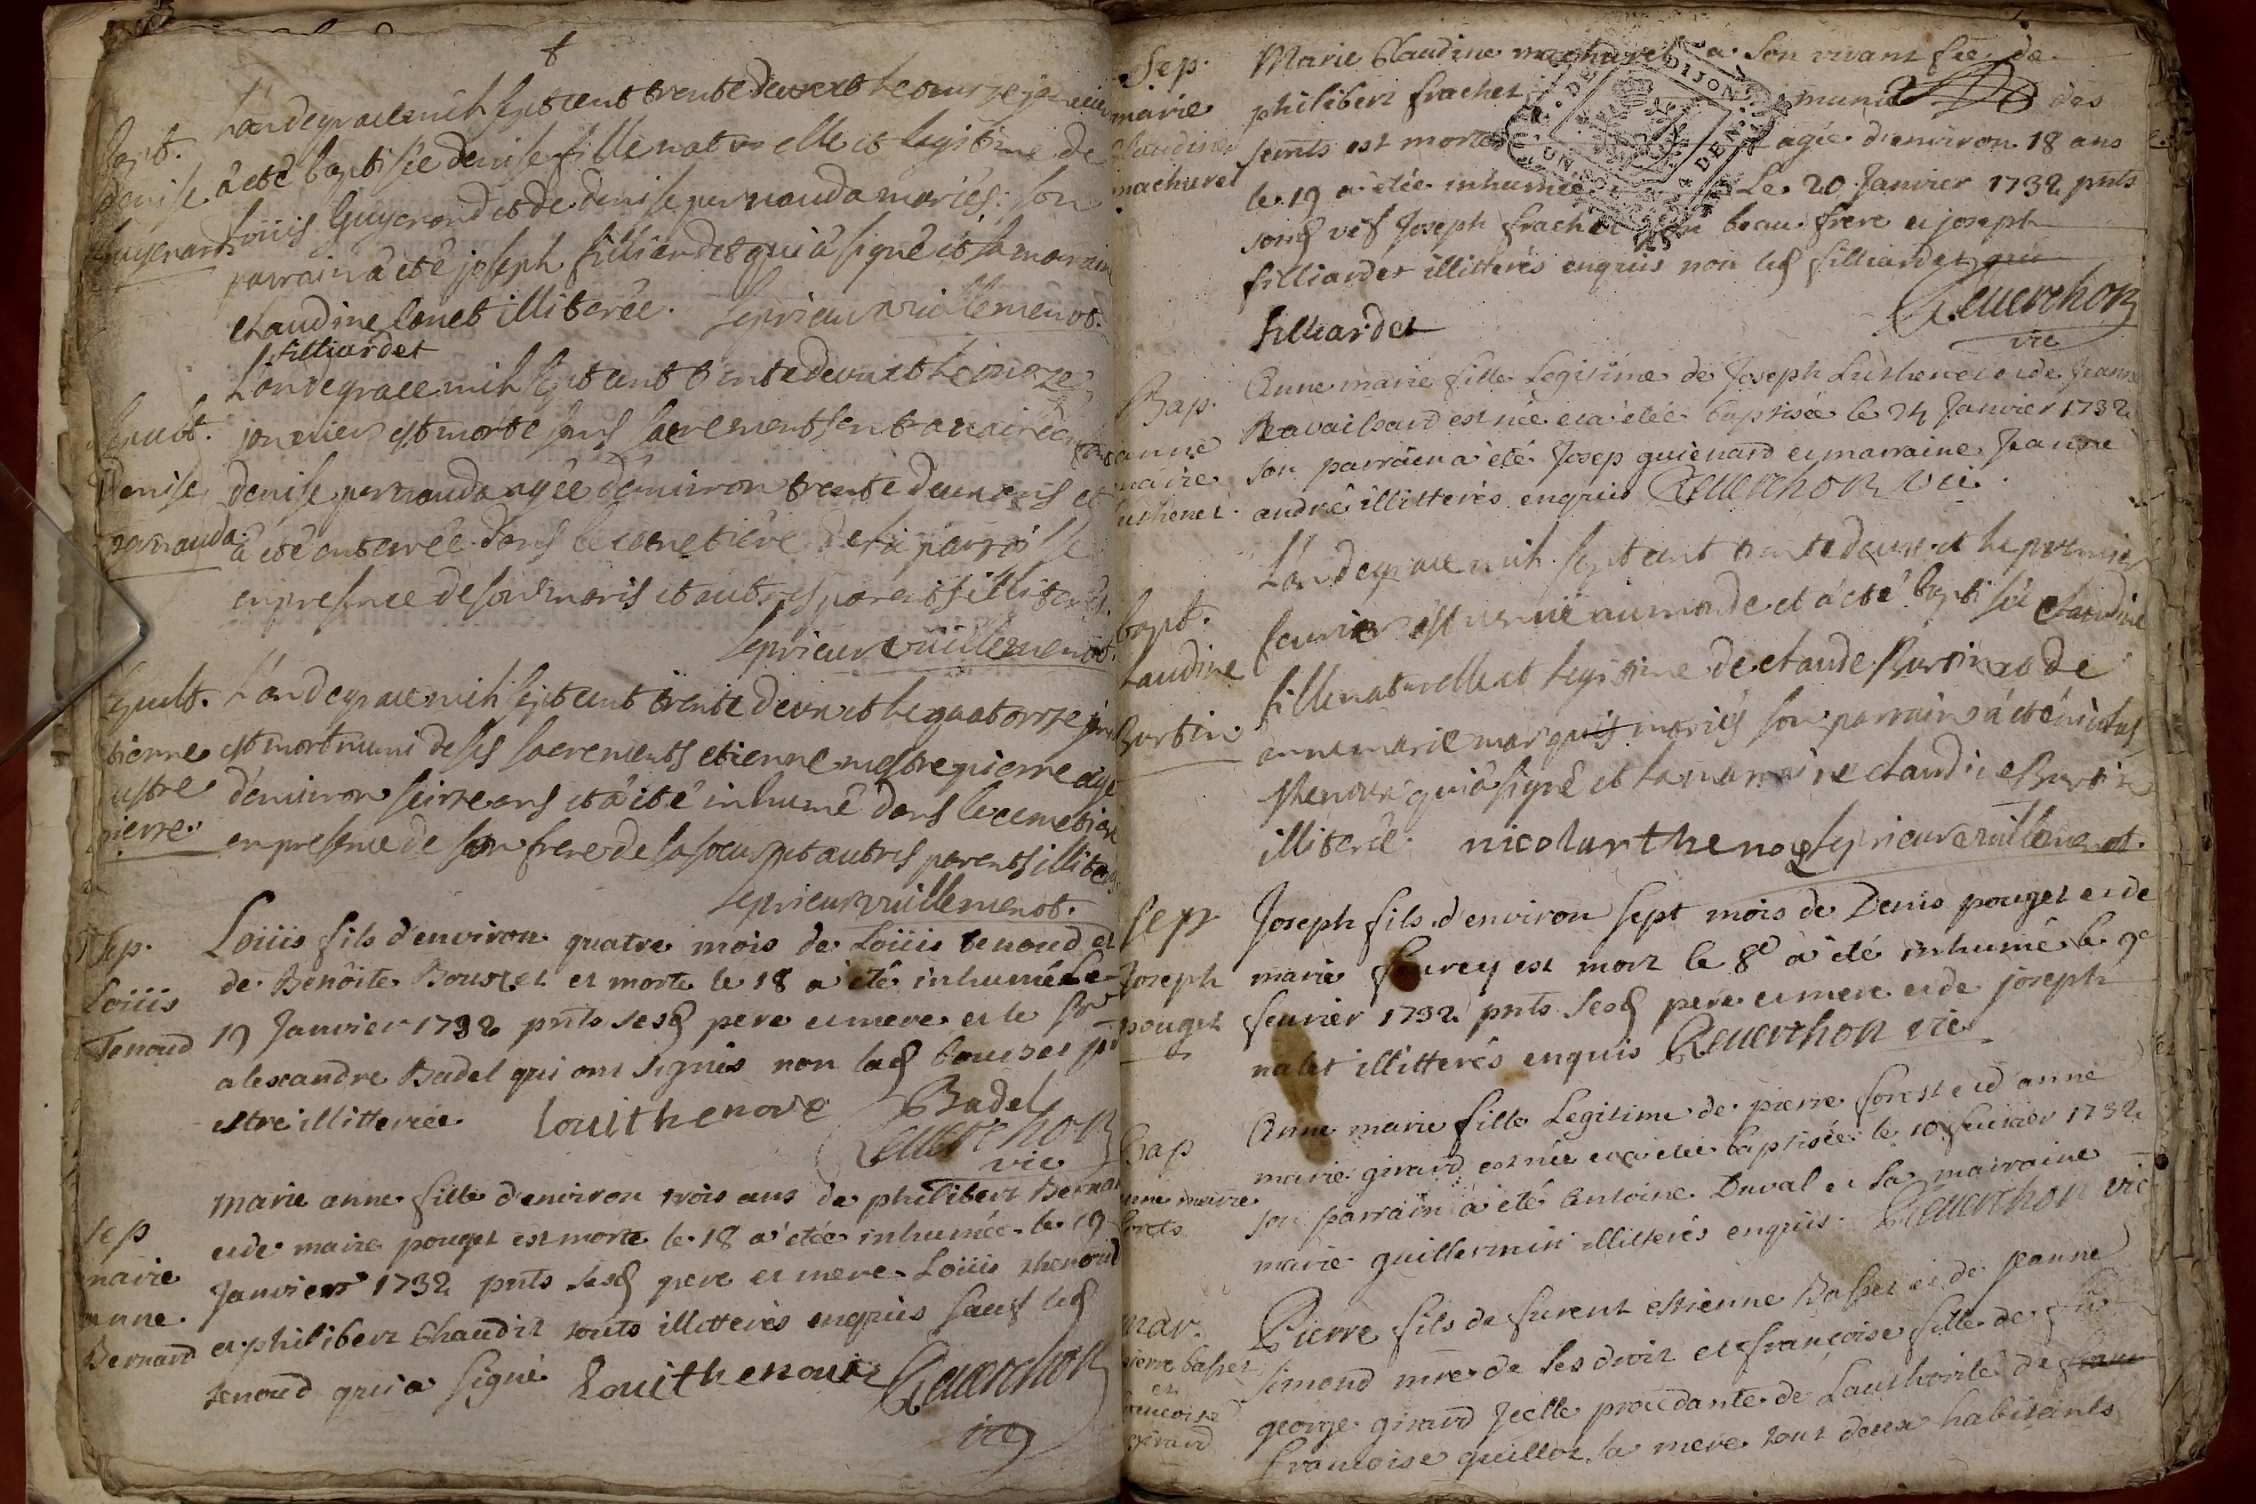 Bapt.
Denise
Guyenard
L'an de grace mil sept cent trente deux et le onze janvier
a eté baptisée denise fille naturelle et legitime de
Loüis Guyenard et de denise pernauda mariés. son
parrain à eté joseph filliardet qui à signé et sa maraine
claudine Conet illiterée. le prieur vuillemenot.
filliardet
Sepult.
Denise
pernauda
L'an de grace mil sept cent trente deux et le onze
janvier est morte sans sacrements
denise pernauda agée d'environ trente deux ans et
à eté enterrée dans le cemetiere de la parroisse
en presence de son maris et autres parents illiterés.
le prieur vuillemenot.
Sepult.
etienne
mestre
pierre
L'an de grace mil sept cent trente deux et le quatorze
est mort muni de ses sacrements etienne mestrepierre agé
d'environ seize ans et à été inhumé dans le cemetiere
en presence de son frere de sa soeur et autres parents illiterés
le prieur vuillemenot.
Sep.
Loüis
Tenoud
Loüis fils d'environ quatre mois de Loüis tenoud et
de Benôite Bouszet et morte le 18 a été inhumé Le
19 Janvier 1732 pnts sesd pere et mere et le sr
alexandre Badel qui ont signés non lad bouszet pr
estre illitterée. Louithenove Badel
Reuerchon
vic
Sep
marie
anne
Bernard
Marie anne fille d'environ trois ans de philibert Bernard
et de marie pouget est morte le 18 a étée inhumée le 19
Janvier 1732 pnts sesd pere et mere Loüis thenoud
et philibert Chaudit touts illitterés enquis sauf led
tenoud qui a signé Louithenoue Reuerchon
vic
Sep.
marie
claudine
machurel
Marie Claudine machurel a son vivant fée de
philibert frachet munie des
semts est morte agée d'environ 18 ans
le 19 a étée inhumée Le 20 Janvier 1732 pnts
sond vef Joseph frachet son beau frere et joseph
filliardet illitterés enquis non led filliardet qui
filliardet Reuerchon
vic
Bap.
anne
marie
Luthenet
Anne marie fille Legitime de Joseph Luthenet et de Jeanne
Ravailhard est née et a étée baptisée le 24 Janvier 1732
son parrain a été Josep guienard et marraine Jeanne
andrê illitterés enquis Reuerchon vic.
bapt.
claudine
Burtin
L'an de grace mil sept cent trente deux et le premier
feurier est venüe au monde et à eté baptisée claudine
fille naturelle et legitime de claude Burtin et de
anne marie marquis mariés son parrain à eté nicolas
thenove qui à signé et la maraine claudine Burtin
illiterée. nicolarthenove le prieur vuillemenot.
Sep
Joseph
pouget
Joseph fils d'environ sept mois de Denis pouget et de
marie fleurey est mort le 8e a été inhumé le 9e
feurier 1732 pnts sesd pere et mere et de joseph
nalet illitterés enquis Reuerchon vic
Bap
anne marie
forets
Anne marie fille Legitime de pierre forest et d'anne
marie girard est née et a étée baptisée le 10 feurier 1732
son parrain a été Antoine Duval et La marraine
marie guillermin illitterés enquis. Reuerchon vic
mar.
pierre basset
et
francoise
girard
Pierre fils de furent estienne Basset et de Jeanne
simond mre de ses droit et françoise fille de fut
george girard Jcelle procedante de L'authorité de fran
francoise guillot sa mere tout deux habitants